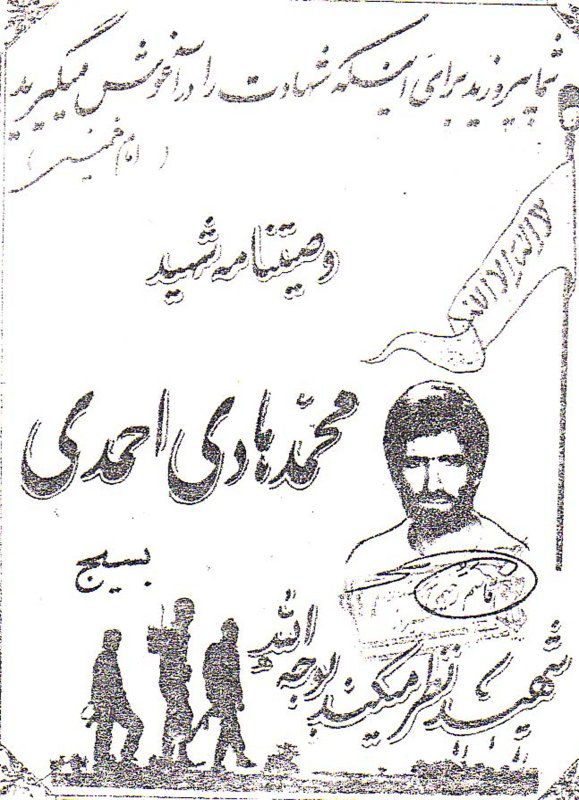 شما پیروزید برای اینکه شهادت را در آغوش میگیرید
(امام خمینی)
لا اله الا الله
وصیتنامه شهید
محمد هادی احمدی
بسیج
قاسم
شهید نظر میکند بوجه الله